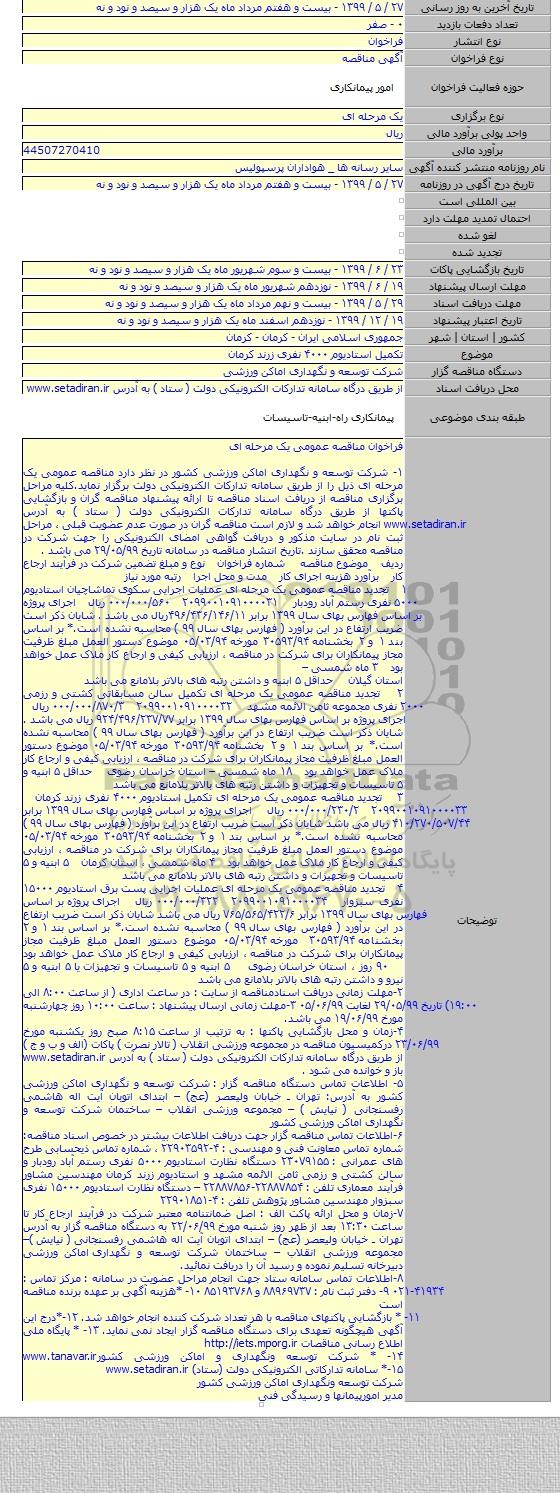 تاریخ آخرین به روز رسانی ۲۷ / ۵ / ۱۳۹۹ - بیست و هفتم مرداد ماه یک هزار و سیصد و نود و نه
تعداد دفعات بازدید ۰ - صفر
نوع انتشار فراخوان
نوع فراخوان آگهی مناقصه
حوزه فعالیت فراخوان امور پیمانکاری
نوع برگزاری یک مرحله ای
واحد پولی برآورد مالی ریال
برآورد مالی 44507270410
نام روزنامه منتشر کننده آگهی سایر رسانه ها _ هواداران پرسپولیس
تاریخ درج آگهی در روزنامه ۲۷ / ۵ / ۱۳۹۹ - بیست و هفتم مرداد ماه یک هزار و سیصد و نود و نه
بین المللی است
احتمال تمدید مهلت دارد
لغو شده
تجدید شده
تاریخ بازگشایی پاکات ۲۳ / ۶ / ۱۳۹۹ - بیست و سوم شهریور ماه یک هزار و سیصد و نود و نه
مهلت ارسال پیشنهاد ۱۹ / ۶ / ۱۳۹۹ - نوزدهم شهریور ماه یک هزار و سیصد و نود و نه
مهلت دریافت اسناد ۲۹ / ۵ / ۱۳۹۹ - بیست و نهم مرداد ماه یک هزار و سیصد و نود و نه
تاریخ اعتبار پیشنهاد ۱۹ / ۱۲ / ۱۳۹۹ - نوزدهم اسفند ماه یک هزار و سیصد و نود و نه
کشور | استان | شهر جمهوری اسلامی ایران - کرمان - کرمان
موضوع تکمیل استادیوم ۴۰۰۰ نفری زرند کرمان
دستگاه مناقصه گزار شرکت توسعه و نگهداری اماکن ورزشی
محل دریافت اسناد از طریق درگاه سامانه تدارکات الکترونیکی دولت ( ستاد ) به آدرس www.setadiran.ir
طبقه بندی موضوعی پیمانکاری راه-ابنیه-تاسیسات
توضیحات
فراخوان مناقصه عمومی یک مرحله ای
۱- شرکت توسعه و نگهداری اماکن ورزشی کشور در نظر دارد مناقصه عمومی یک
مرحله ای ذیل را از طریق سامانه تدارکات الکترونیکی دولت برگزار نماید.کلیه مراحل
برگزاری مناقصه از دریافت اسناد مناقصه تا ارائه پیشنهاد مناقصه گران و بازگشایی
پاکتها از طریق درگاه سامانه تدارکات الکترونیکی دولت ( ستاد ) به آدرس
www.setadiran.ir انجام خواهد شد و لازم است مناقصه گران در صورت عدم عضویت قبلی ، مراحل
ثبت نام در سایت مذکور و دریافت گواهی امضای الکترونیکی را جهت شرکت در
مناقصه محقق سازند .تاریخ انتشار مناقصه در سامانه تاریخ ۲۹/۰۵/۹۹ می باشد .
ردیف موضوع مناقصه شماره فراخوان نوع و مبلغ تضمین شرکت در فرآیند ارجاع
کار برآورد هزینه اجرای کار مدت و محل اجرا رتبه مورد نیاز
۱ تجدید مناقصه عمومی یک مرحله ای عملیات اجرایی سکوی تماشاچیان استادیوم
۵۰۰۰ نفری رستم آباد رودبار ۲۰۹۹۰۰۱۰۹۱۰۰۰۰۳۱ ۰۰۰/۰۰۰/۵۶۰ ریال اجرای پروژه
بر اساس فهارس بهای سال ۱۳۹۹ برابر ۴۹۶/۴۳۶/۱۴۶/۱۱ریال می باشد . شایان ذکر است
ضریب ارتفاع در این برآورد ( فهارس بهای سال ۹۹ ) محاسبه نشده است.* بر اساس
بند ۱ و ۲ بخشنامه ۳۰۵۹۳/۹۴ مورخه ۰۵/۰۳/۹۴ موضوع دستور العمل مبلغ ظرفیت
مجاز پیمانکاران برای شرکت در مناقصه ، ارزیابی کیفی و ارجاع کار ملاک عمل خواهد
بود ۳ ماه شمسی –
استان گیلان حداقل ۵ ابنیه و داشتن رتبه های بالاتر بلامانع می باشد
۲ تجدید مناقصه عمومی یک مرحله ای تکمیل سالن مسابقاتی کشتی و رزمی
۲۰۰۰ نفری مجموعه ثامن الائمه مشهد ۲۰۹۹۰۰۱۰۹۱۰۰۰۰۳۲ ۰۰۰/۰۰۰/۸۷۰/۳ ریال
اجرای پروژه بر اساس فهارس بهای سال ۱۳۹۹ برابر ۹۲۴/۴۹۶/۲۳۷/۷۷ ریال می باشد .
شایان ذکر است ضریب ارتفاع در این برآورد ( فهارس بهای سال ۹۹ ) محاسبه نشده
است.* بر اساس بند ۱ و ۲ بخشنامه ۳۰۵۹۳/۹۴ مورخه ۰۵/۰۳/۹۴ موضوع دستور
العمل مبلغ ظرفیت مجاز پیمانکاران برای شرکت در مناقصه ، ارزیابی کیفی و ارجاع کار
ملاک عمل خواهد بود ۱۸ ماه شمسی – استان خراسان رضوی حداقل ۵ ابنیه و
۵ تاسیسات و تجهیزات و داشتن رتبه های بالاتر بلامانع می باشد
۳ تجدید مناقصه عمومی یک مرحله ای تکمیل استادیوم ۴۰۰۰ نفری زرند کرمان
۲۰۹۹۰۰۱۰۹۱۰۰۰۰۳۳ ۰۰۰/۰۰۰/۲۳۰/۲ ریال اجرای پروژه بر اساس فهارس بهای سال ۱۳۹۹ برابر
۴۱۰/۲۷۰/۵۰۷/۴۴ ریال می باشد شایان ذکر است ضریب ارتفاع در این برآورد ( فهارس بهای سال ۹۹ )
محاسبه نشده است.* بر اساس بند ۱ و ۲ بخشنامه ۳۰۵۹۳/۹۴ مورخه ۰۵/۰۳/۹۴
موضوع دستور العمل مبلغ ظرفیت مجاز پیمانکاران برای شرکت در مناقصه ، ارزیابی
کیفی و ارجاع کار ملاک عمل خواهد بود ۴ ماه شمسی ، استان کرمان ۵ ابنیه و ۵
تاسیسات و تجهیزات و داشتن رتبه های بالاتر بلامانع می باشد
۴ تجدید مناقصه عمومی یک مرحله ای عملیات اجرایی پست برق استادیوم ۱۵۰۰۰
نفری سبزوار ۲۰۹۹۰۰۱۰۹۱۰۰۰۰۳۴ ۰۰۰/۰۰۰/۳۲۴ ریال اجرای پروژه بر اساس
فهارس بهای سال ۱۳۹۹ برابر ۷۶۵/۵۶۵/۴۲۲/۶ ریال می باشد شایان ذکر است ضریب ارتفاع
در این برآورد ( فهارس بهای سال ۹۹ ) محاسبه نشده است.* بر اساس بند ۱ و ۲
بخشنامه ۳۰۵۹۳/۹۴ مورخه ۰۵/۰۳/۹۴ موضوع دستور العمل مبلغ ظرفیت مجاز
پیمانکاران برای شرکت در مناقصه ، ارزیابی کیفی و ارجاع کار ملاک عمل خواهد بود
۹۰ روز ، استان خراسان رضوی ۵ ابنیه و ۵ تاسیسات و تجهیزات یا ۵ ابنیه و ۵
نیرو و داشتن رتبه های بالاتر بلامانع می باشد
۲-مهلت زمانی دریافت اسنادمناقصه از سایت : در ساعت اداری ( از ساعت ۸:۰۰ الی
۱۹:۰۰) تاریخ ۲۹/۰۵/۹۹ لغایت ۰۵/۰۶/۹۹ ۳-مهلت زمانی ارسال پیشنهاد : ساعت ۱۰:۰۰ روز چهارشنبه
مورخ ۱۹/۰۶/۹۹ می باشد.
۴-زمان و محل بازگشایی پاکتها : به ترتیب از ساعت ۸:۱۵ صبح روز یکشنبه مورخ
۲۳/۰۶/۹۹ درکمیسیون مناقصه در مجموعه ورزشی انقلاب ( تالار نصرت ) پاکات (الف و ب و ج )
از طریق درگاه سامانه تدارکات الکترونیکی دولت ( ستاد ) به آدرس www.setadiran.ir
باز و خوانده می شود .
۵- اطلاعات تماس دستگاه مناقصه گزار : شرکت توسعه و نگهداری اماکن ورزشی
کشور به آدرس: تهران ـ خیابان ولیعصر (عج) – ابتدای اتوبان آیت اله هاشمی
رفسنجانی ( نیایش ) – مجموعه ورزشی انقلاب – ساختمان شرکت توسعه و
نگهداری اماکن ورزشی کشور
۶-اطلاعات تماس مناقصه گزار جهت دریافت اطلاعات بیشتر در خصوص اسناد مناقصه:
شماره تماس معاونت فنی و مهندسی : ۴-۲۲۹۰۳۵۹۲ ، شماره تماس ذیحسابی طرح
های عمرانی : ۲۳۰۷۹۱۵۵ دستگاه نظارت استادیوم ۵۰۰۰ نفری رستم آباد رودبار و
سالن کشتی و رزمی ثامن الائمه مشهد و استادیوم زرند کرمان مهندسین مشاور
فرآیند معماری تلفن : ۲۲۸۸۷۸۵۴-۲۲۸۸۷۸۵۶ – دستگاه نظارت استادیوم ۱۵۰۰۰ نفری
سبزوار مهندسین مشاور پژوهش تلفن : ۴-۲۲۹۰۱۸۵۱
۷-زمان و محل ارائه پاکت الف : اصل ضمانتنامه معتبر شرکت در فرآیند ارجاع کار تا
ساعت ۱۳:۳۰ بعد از ظهر روز شنبه مورخ ۲۲/۰۶/۹۹ به دستگاه مناقصه گزار به آدرس
تهران ـ خیابان ولیعصر (عج) – ابتدای اتوبان آیت اله هاشمی رفسنجانی ( نیایش )–
مجموعه ورزشی انقلاب – ساختمان شرکت توسعه و نگهداری اماکن ورزشی
دبیرخانه تسلیم نموده و رسید آن را دریافت نمائید.
۸-اطلاعات تماس سامانه ستاد جهت انجام مراحل عضویت در سامانه : مرکز تماس :
۰۲۱-۴۱۹۳۴ ۹- دفتر ثبت نام : ۸۸۹۶۹۷۳۷ و ۸۵۱۹۳۷۶۸ ۱۰- *هزینه آگهی بر عهده برنده مناقصه
است
۱۱- * بازگشایی پاکتهای مناقصه با هر تعداد شرکت کننده انجام خواهد شد. ۱۲-*درج این
آگهی هیچگونه تعهدی برای دستگاه مناقصه گزار ایجاد نمی نماید. ۱۳- * پایگاه ملی
اطلاع رسانی مناقصات http://iets.mporg.ir
۱۴- * شرکت توسعه ونگهداری و اماکن ورزشی کشورwww.tanavar.ir
۱۵-* سامانه تدارکاتی الکترونیکی دولت (ستاد) www.setadiran.ir
شرکت توسعه ونگهداری اماکن ورزشی کشور
مدیر امورپیمانها و رسیدگی فنی